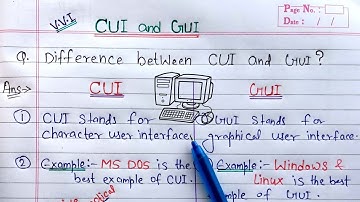 V.V.I
CUI and GUI
Page No.:
Date: / /
Q. Difference between CUI and GUI?
Ans→
CUI
GUI
① CUI stands for
character user interface
GUI stands for
graphical user interface.
② Example:- MS DOS is the
best example of CUI.
Example:- Windows &
Linux is the best
example of GUI.